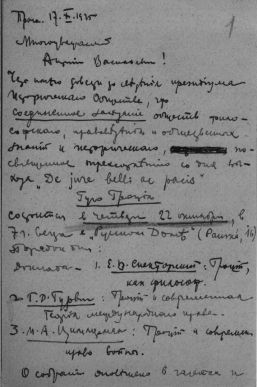 1
Прага. 17.X.1925
Многоуважаемый
Антоний Васильевич!
Честь имею довести до сведения президиума
Исторического Общества, что
Соединенное заседание обществ фило-
софского, правоведения и общественных
знаний и исторического, по-
священное трехсотлетию со дня вы-
хода „De jure belli ac pacis"
Гуго Гроция
состоится в четверг 22 октября, в
7 ч. вечера в „Русском Доме" (Panská, 16)
Порядок дня:
доклады. 1. Е. В. Спекторский: Гроций,
как философ.
2. Г. Д. Гурвич: Гроций и современная
теория международного права.
3. М. А. Циммерман: Гроций и современ.
право войны.
О собрании объявлено в газетах и